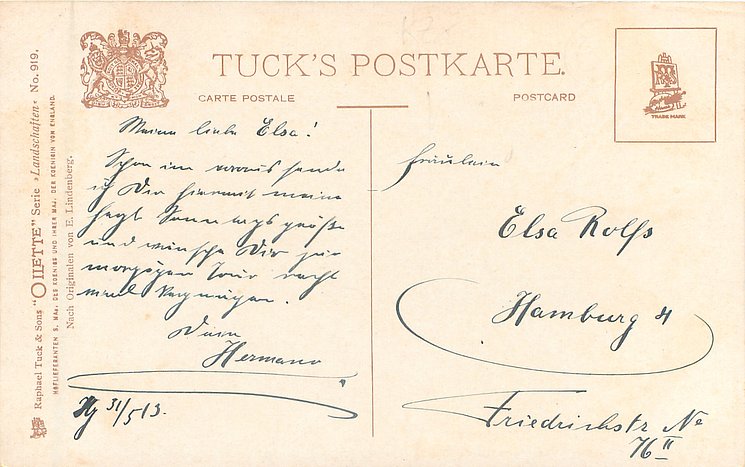 TUCK'S POSTKARTE.
CARTE POSTALE
POSTCARD
TRADE MARK
Raphael Tuck & Sons "OILETTE" Serie „Landschaften“ No. 919.
HOFLIEFERANTEN S. MAJ. DES KOENIGS UND IHRER MAJ. DER KOENIGIN VON ENGLAND.
Nach Originalen von E. Lindenberg.
Meine liebe Elsa!
Schon im voraus sende
ich Dir hiermit meine
Sonntagsgrüße
und wünsche Dir zur
morgigen Tour recht
viel Vergnügen.
Dein
Hermann
Hg 31/5 13.
Fräulein
Elsa Rolfs
Hamburg 4
Friedrichstr No
76 II